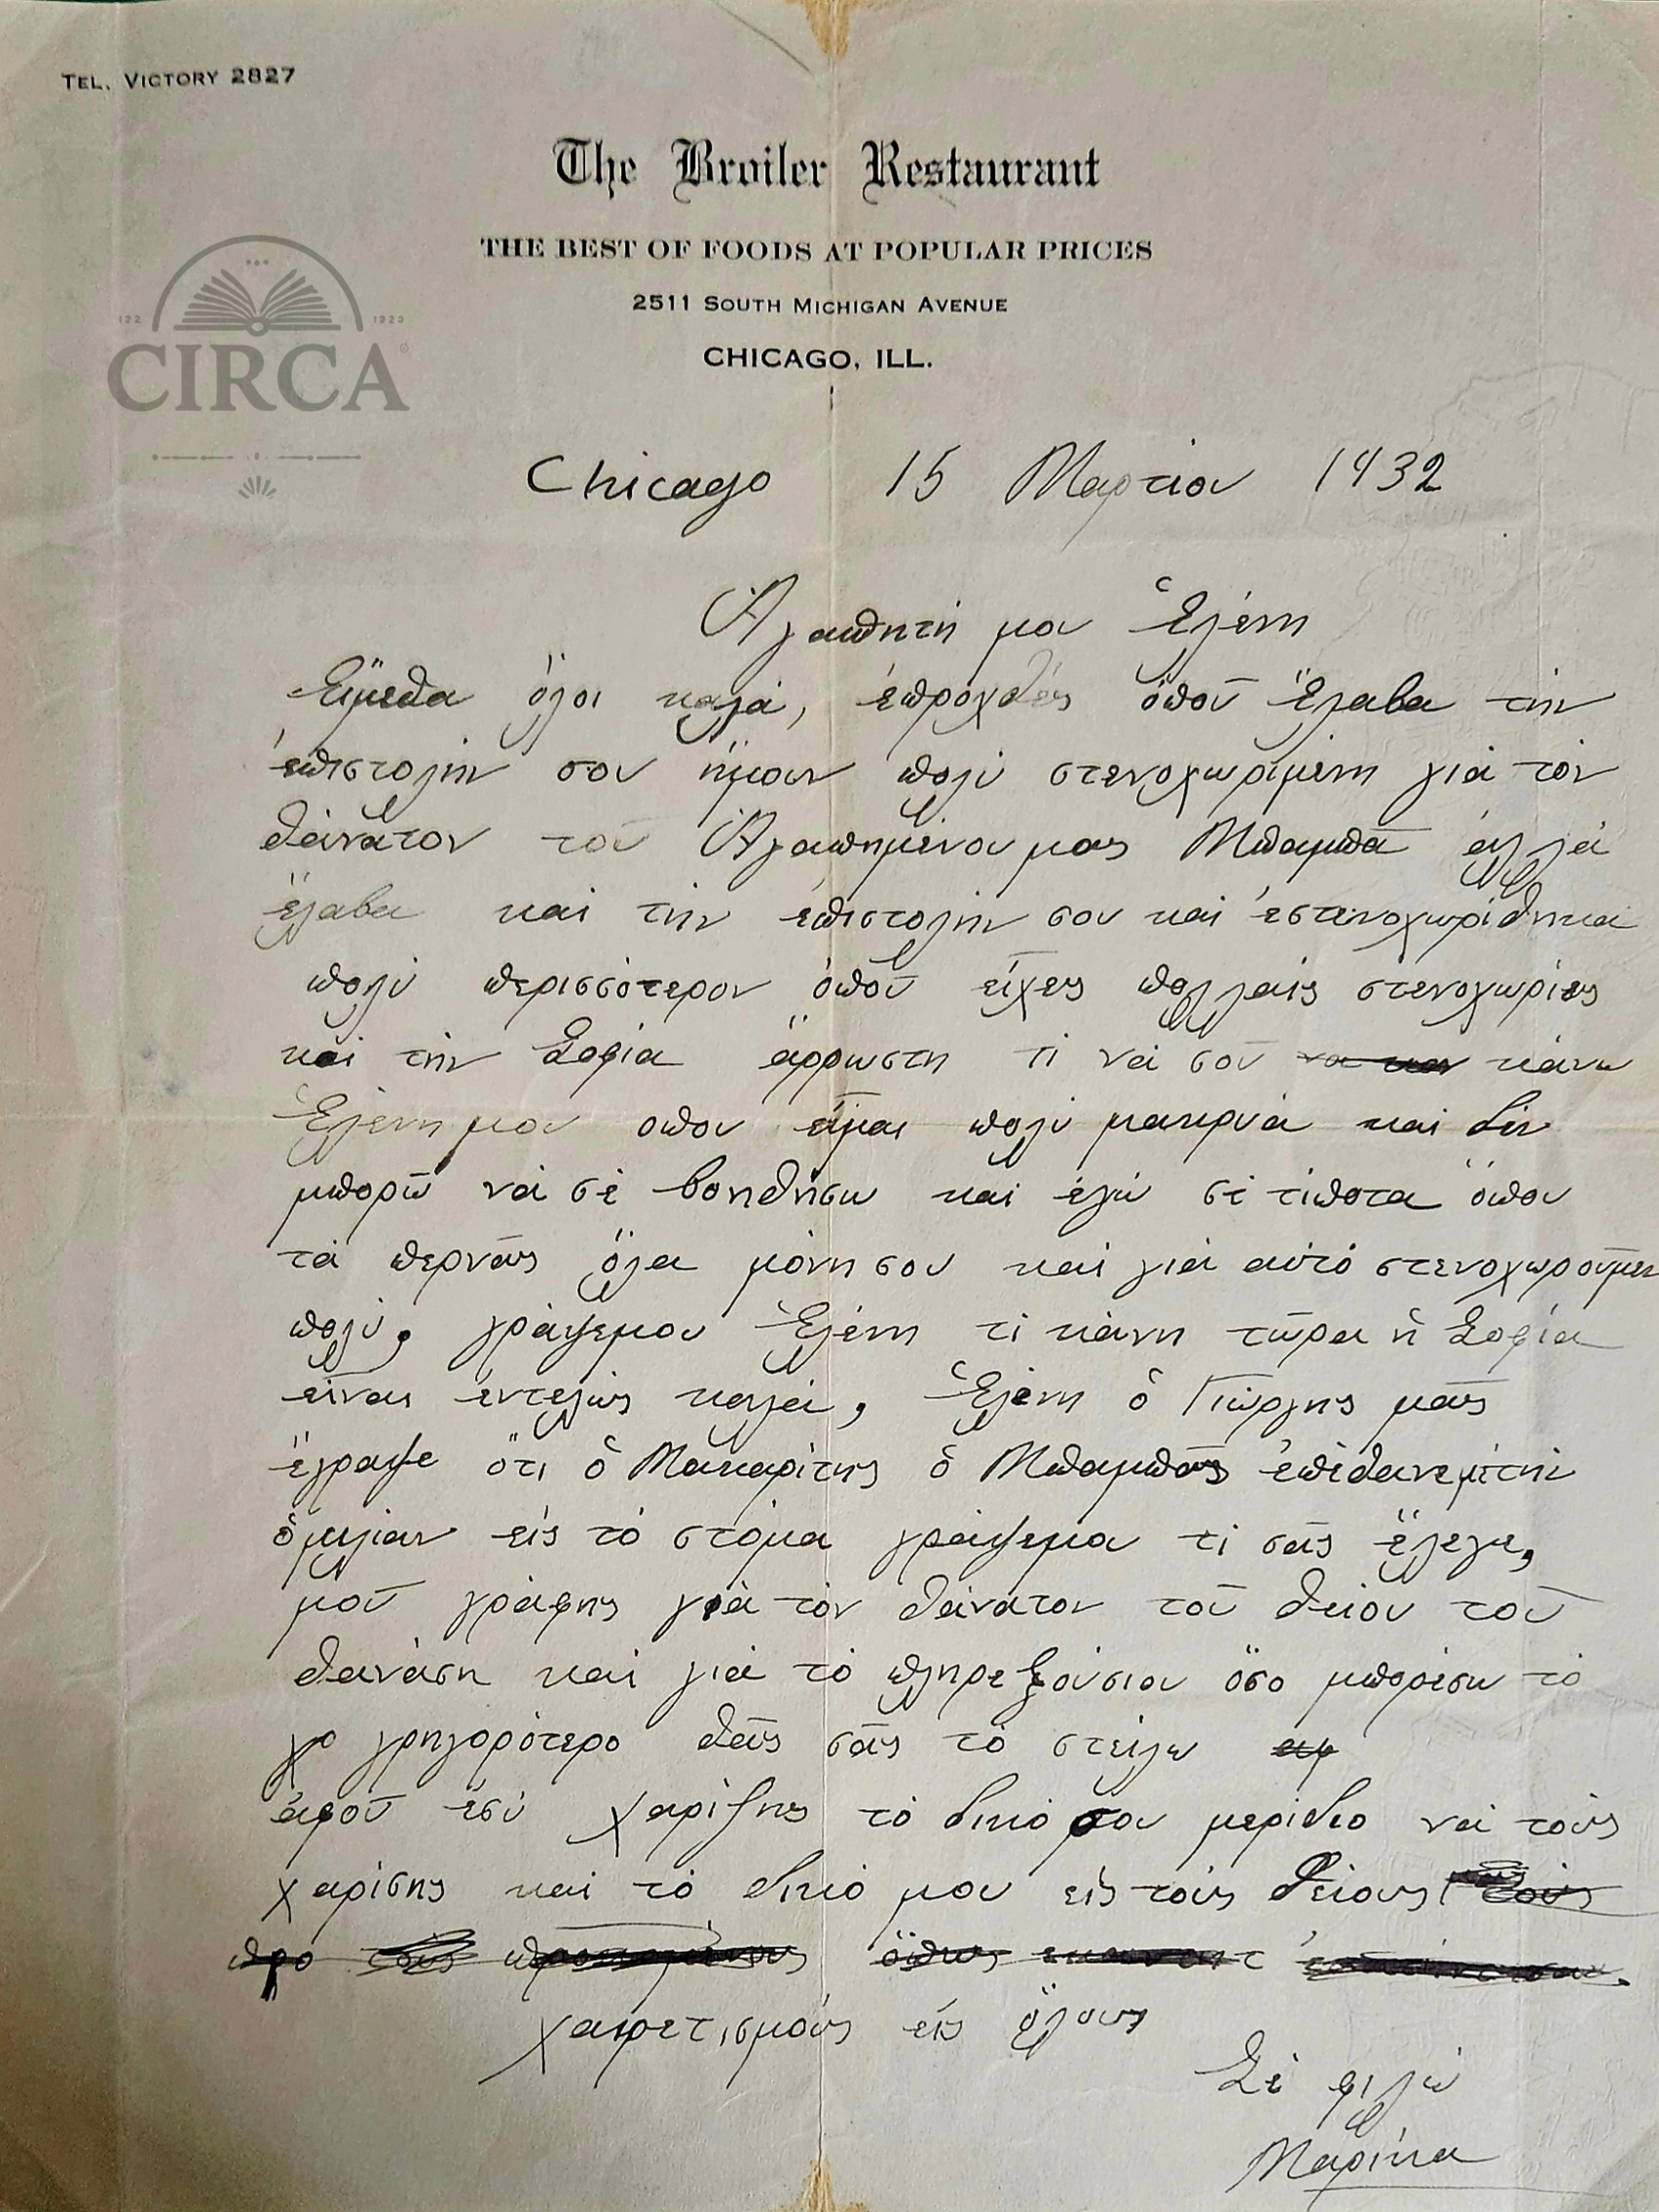 TEL. VICTORY 2827
The Broiler Restaurant
THE BEST OF FOODS AT POPULAR PRICES
2511 SOUTH MICHIGAN AVENUE
CHICAGO, ILL.
122 1923
CIRCA
Chicago 15 Μαρτίου 1932
Ἀγαπητή μου Ἑλένη
Εἴμεθα ὅλοι καλά, ἐπροχθές ὁποῦ ἔλαβα τήν
ἐπιστολήν σου ἤμουν πολύ στενοχωριμένη γιά τόν
θάνατον τοῦ Ἀγαπημένου μας Μπαμπᾶ ἀλλά
ἔλαβα καί τήν ἐπιστολήν σου καί ἐστενοχωρίθηκα
πολύ περισσότερον ὁποῦ εἶχες πολλαίς στενοχωρίες
καί τήν Σοφία ἄρρωστη τί νά σοῦ κάνω
Ἑλένη μου οπου εἶμαι πολύ μακρυά καί δέν
μπορῶ νά σέ βοηθήσω καί ἐγώ σέ τίποτα ὅπου
τά περνᾶς ὅλα μόνη σου καί γιά αὐτό στενοχωροῦμεν
πολύ, γράψεμου Ἑλένη τί κάνη τῶρα ἡ Σοφία
εἶναι ἐντελῶς καλά, Ἑλένη ὁ Γιώργης μᾶς
ἔγραψε ὅτι ὁ Μακαρίτης ὁ Μπαμπᾶς ἐπέθανεμέτήν
ὁμιλίαν εἰς τό στόμα γράψεμου τί σᾶς ἔλεγε,
μοῦ γράφης γιά τόν θάνατον τοῦ θείου τοῦ
θανάση καί γιά τό πληρεξούσιον ὅσο μπορέσω τό
γο γρηγορότερο θᾶς σᾶς τό στείλω αφ
ἀφοῦ ἐσύ χαρίζης τό δικό σου μερίδιο νά τούς
χαρίσης καί τό δικό μου εἰς τούς θείους τούς
προ τούς ὅπως
χαιρετισμούς εἰς ὅλους
Σέ φιλῶ
Μαρίκα